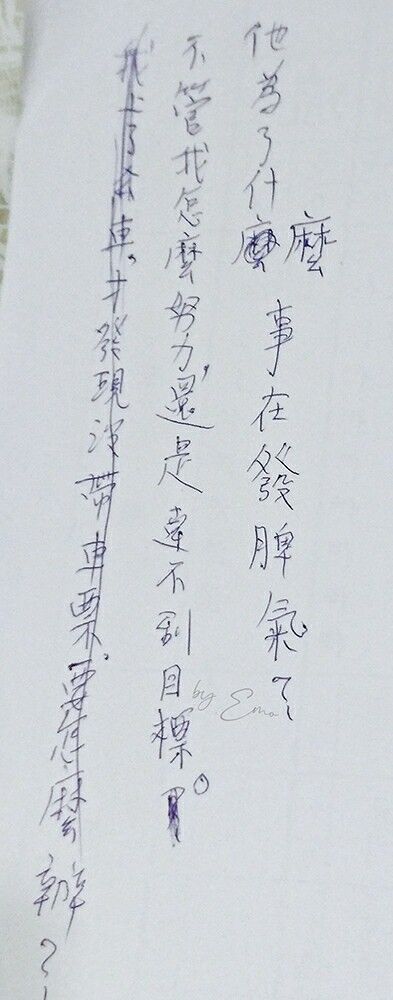 他為了什麼事在發脾氣？
不管我怎麼努力，還是達不到目標。
我上車，才發現沒帶車票，要怎麼辦？
by